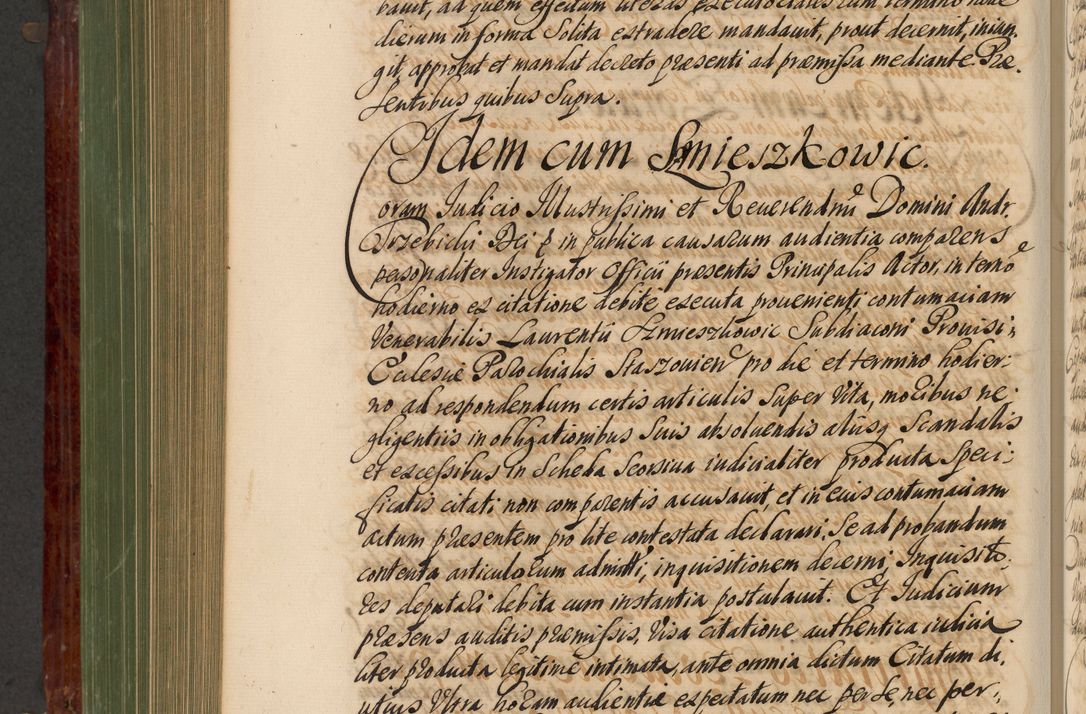 bavit, ad quem effectum literas
dierum in forma solita extradere mandauit, prout decernit, iniun-
git, approbat et mandat decreto præsenti ad præmissa mediante Præ-
sentibus quibus supra.
Idem cum Smieszkowic.
Coram Judicio Illustrissimi et Reuerendmi Domini Andr.
Trzebicki Dei g in publica causarum audientia comparens
personaliter Instigator Officii præsentis Principalis Actor, in termo
hodierno ex citatione debite executa prouenienti contumaciam
Venerabilis Laurentii Szmieszkowic Subdiaconi Prouisi:
Ecclesiæ Parochialis Staszouien pro die et termino hodier:
no ad respondendum certis articulis super vita, moribus ne:
gligentiis in obligationibus suis absoluendis aliisq scandalis
et excessibus in scheda seorsiua iudicialiter producta speci:
ficatis citati non comparentis accusauit, et in eius contumaciam
actum præsentem pro lite contestata declarari, se ad probandum
contenta articulorum admitti, inquisitionem decerni, Inquisito:
res deputari debita cum instantia postulauit. Et Iudicium
præsens auditis præmissis, visa citatione authentica iudicia
liter producta legitime intimata, ante omnia dictum Citatum di,
utius Ultra horam audientiæ expectatum nec per se, nec per,